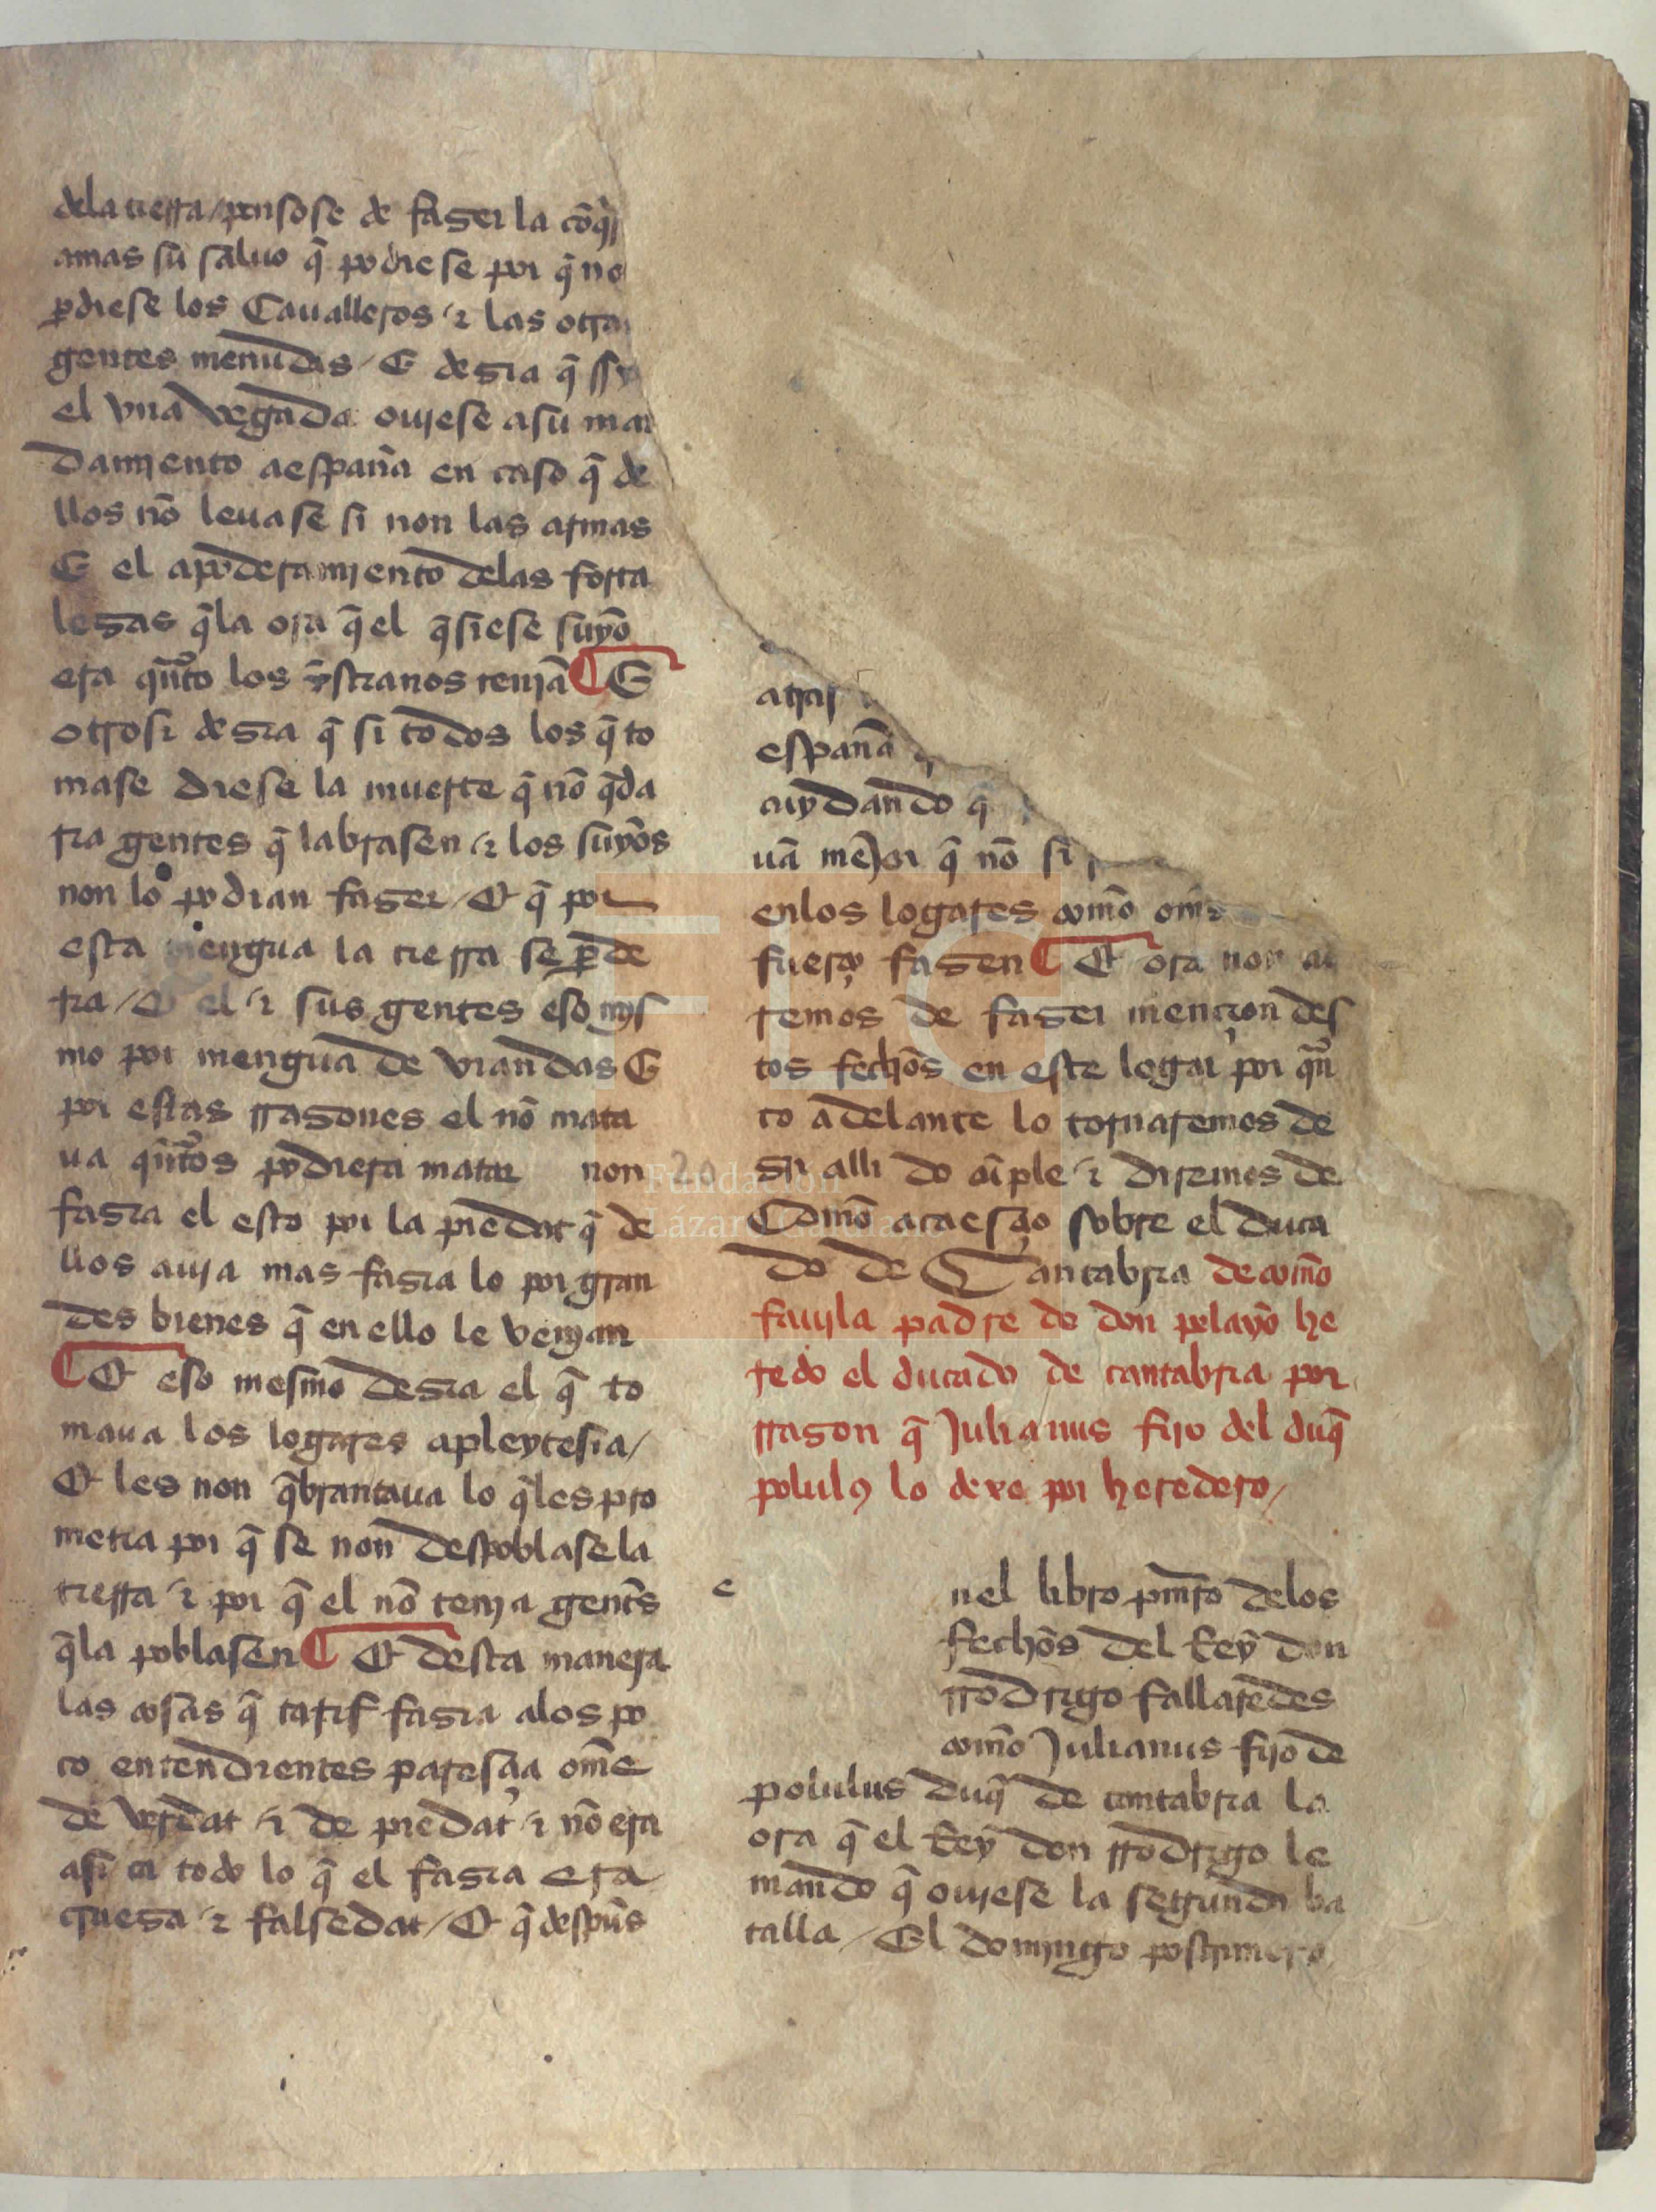 dela tierra / pensose de faser la cõq̃
amas su saluo q̃ podiese por q̃ no
ꝑdiese los Caualleros ⁊ las otra
gentes menudas / E desia q̃ ssy
el vna vegada ouiese a su man
damiento a españa en caso q̃ de
llos nõ leuase si non las armas
E el apoderamiento delas forta
lesas q̃la ora q̃ el q̃siese suyo
era qũto los xp̃stianos teniã ¶ E
otrosi desia q̃ si todos los q̃ to
mase diese la muerte q̃ nõ q̃da
ria gentes q̃ labrasen ⁊ los suyos
non lo podrian faser / E q̃ por
esta mengua la tierra se ꝑde
ria / E el ⁊ sus gentes eso mis
mo por mengua de viandas E
por estas rrasones el nõ mata
ua qũtos podiera matar non
fasia el esto por la piedat q̃ de
llos auia mas fasia lo por gran
des bienes q̃ en ello le venian
¶ E eso mesmo desia el q̃ to
maua los logares a pleytesia /
E les non q̃brantaua lo q̃les pro
metia por q̃ se non despoblase la
tierra ⁊ por q̃ el nõ tenia gent̃s
q̃la poblasen ¶ E desta manera
las cosas q̃ tarif fasia alos po
co entendientes paresçia om̃e
de verdat ⁊ de piedat ⁊ nõ era
asi ca todo lo q̃ el fasia era
q̃uesa ⁊ falsedat / E q̃ despũs
atras
españa
cuydando q
uã mẽjor q̃ nõ si
enlos logares com̃o om̃s
fuerço fasen ¶ E ora non a
remos de faser mençion des
tos fechos en este logar por qũ
to adelante lo tornaremos de
sir alli do cũple ⁊ diremos de
Com̃o acaesçio sobre el duca
do de Cantabria de com̃o
fauila padre de don pelayo he
redo el ducado de cantabria por
rrason q̃ Julianus fijo del duq̃
polulꝯ lo dexo por heredero /
e nel libro pm̃ro delos
fechos del Rey don
rrodrigo fallaredes
com̃o Julianus fijo de
polulus duq̃ de cantabria la
ora q̃ el Rey don rrodrigo le
mando q̃ ouiese la segunda ba
talla / El domingo postrimero
20
FLG
Fundación
Lázaro Galdiano